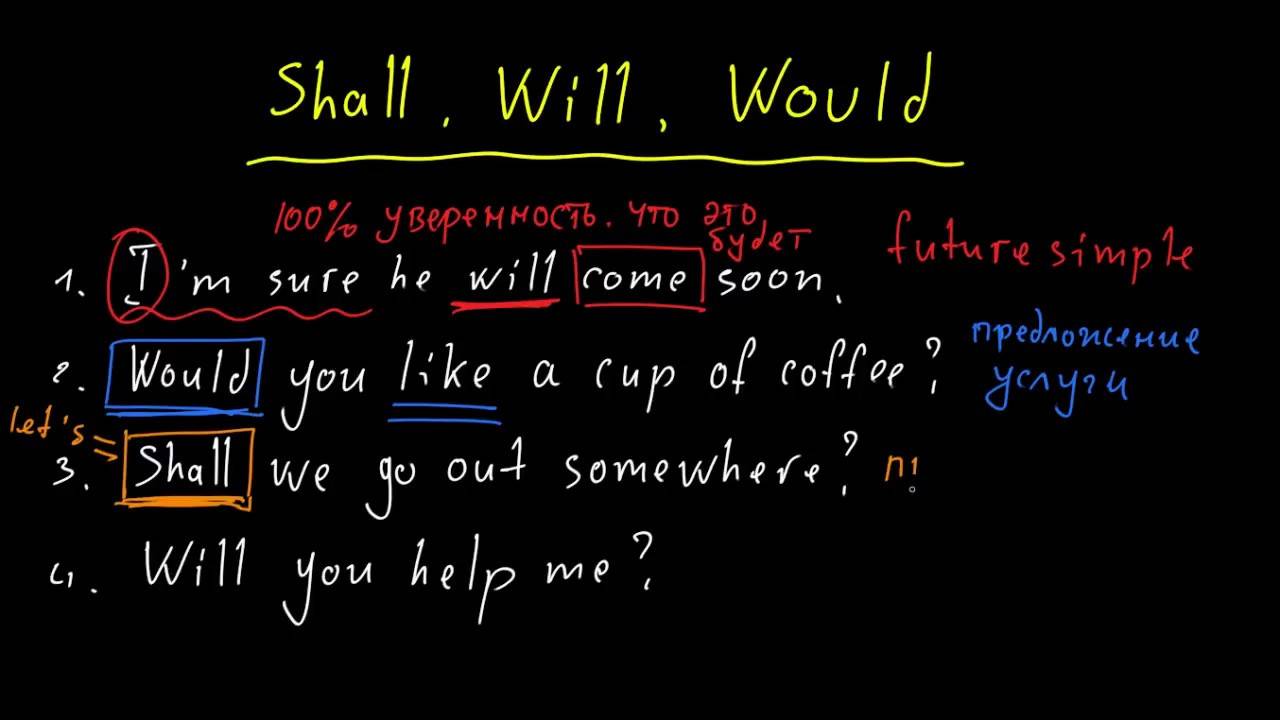 Shall, Will, Would
100% уверенность. что это будет
1. I'm sure he will come soon.
future simple
2. Would you like a cup of coffee?
предложение
услуги
let's
3. Shall we go out somewhere?
4. Will you help me?